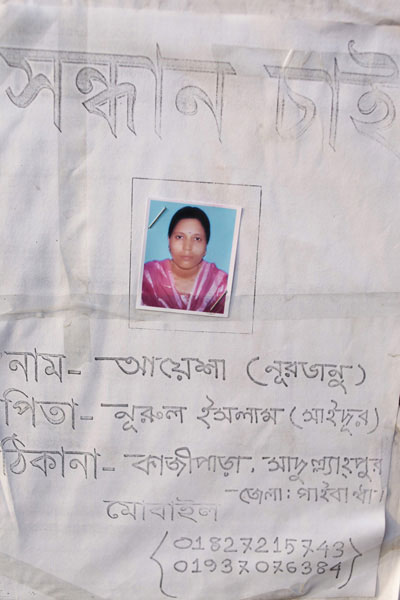 সন্ধান চাই
নাম- আয়েশা (নূরজানু)
পিতা- নূরুল ইসলাম (সাইদুর)
ঠিকানা- কাজীপাড়া, সাদুল্ল্যাপুর
-জেলা: গাইবান্ধা।
মোবাইল
01827215743
01937076384